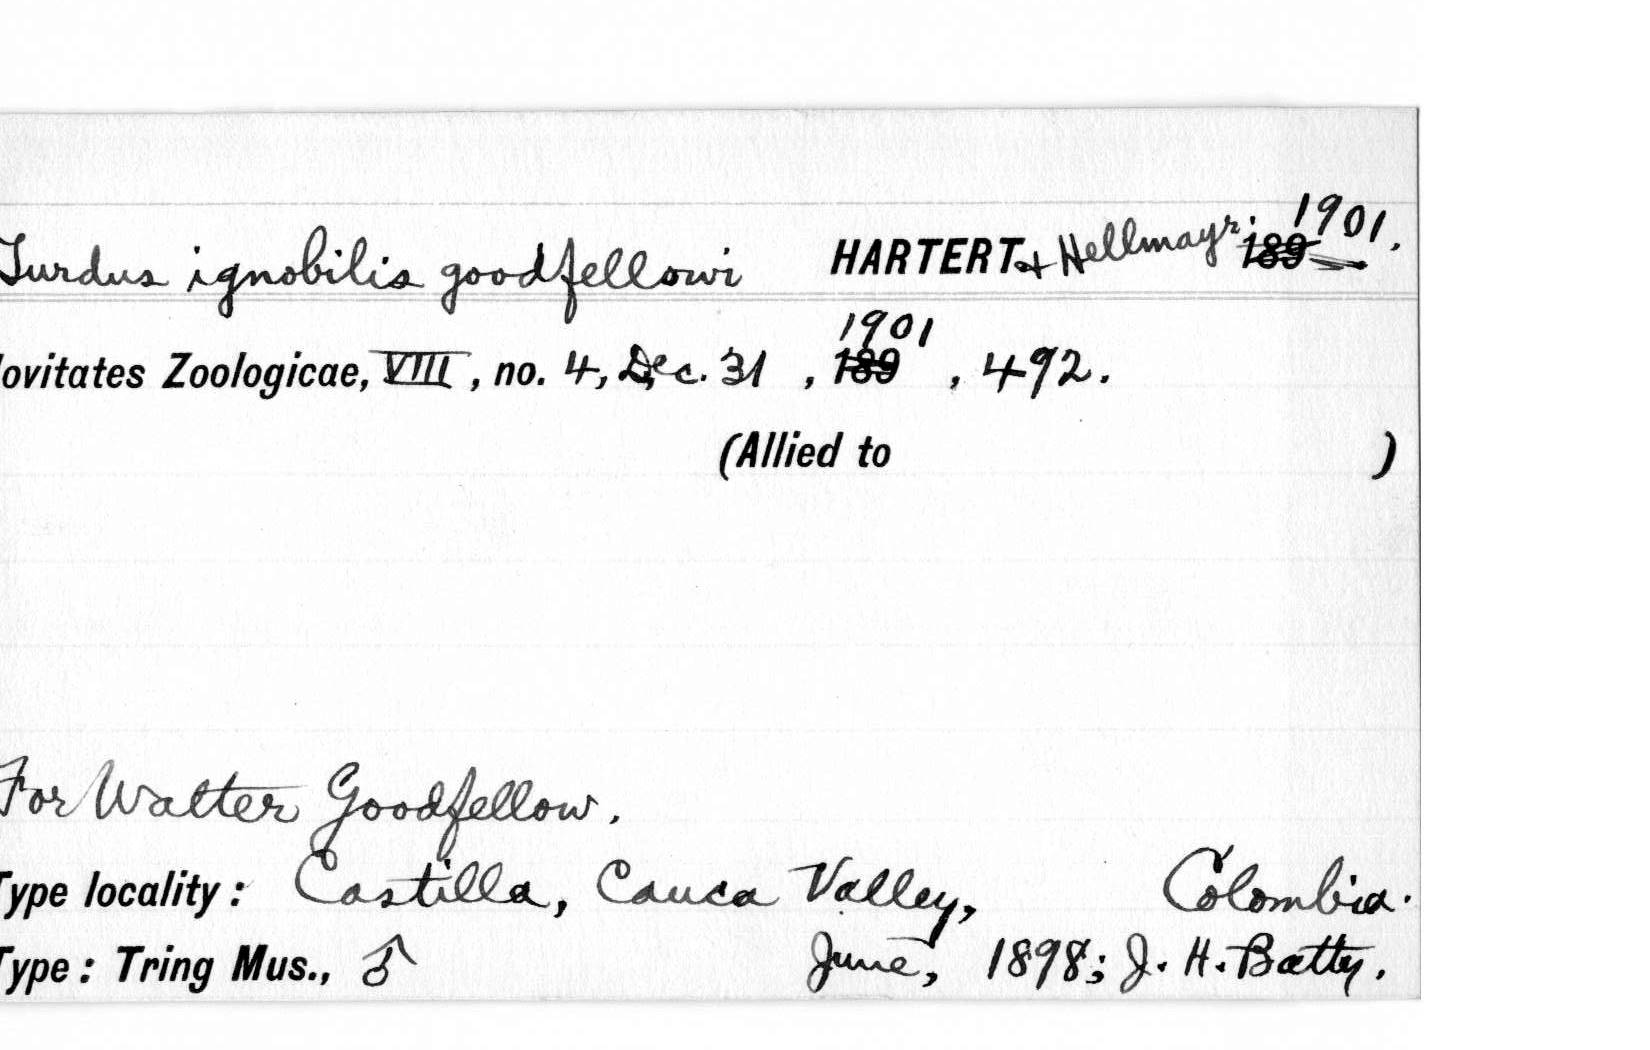 Turdus ignobilis goodfellowi HARTERT & Hellmayr. 189 1901.
ovitates Zoologicae, VIII, no. 4, Dec. 31, 189 1901, 492.
(Allied to )
For Walter Goodfellow.
Type locality: Castilla, Cauca Valley, Colombia.
Type: Tring Mus., ♂ June, 1898; J. H. Batty.